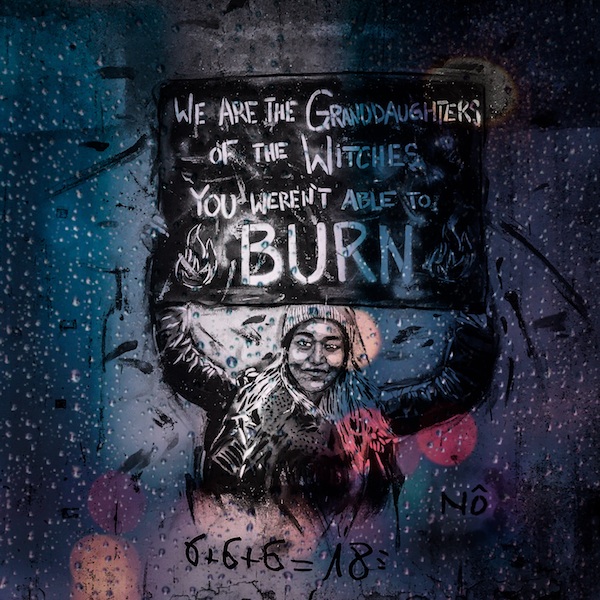 WE ARE THE GRANDDAUGHTERS
OF THE WITCHES
YOU WEREN'T ABLE TO
BURN
NÔ
6+6+6=18